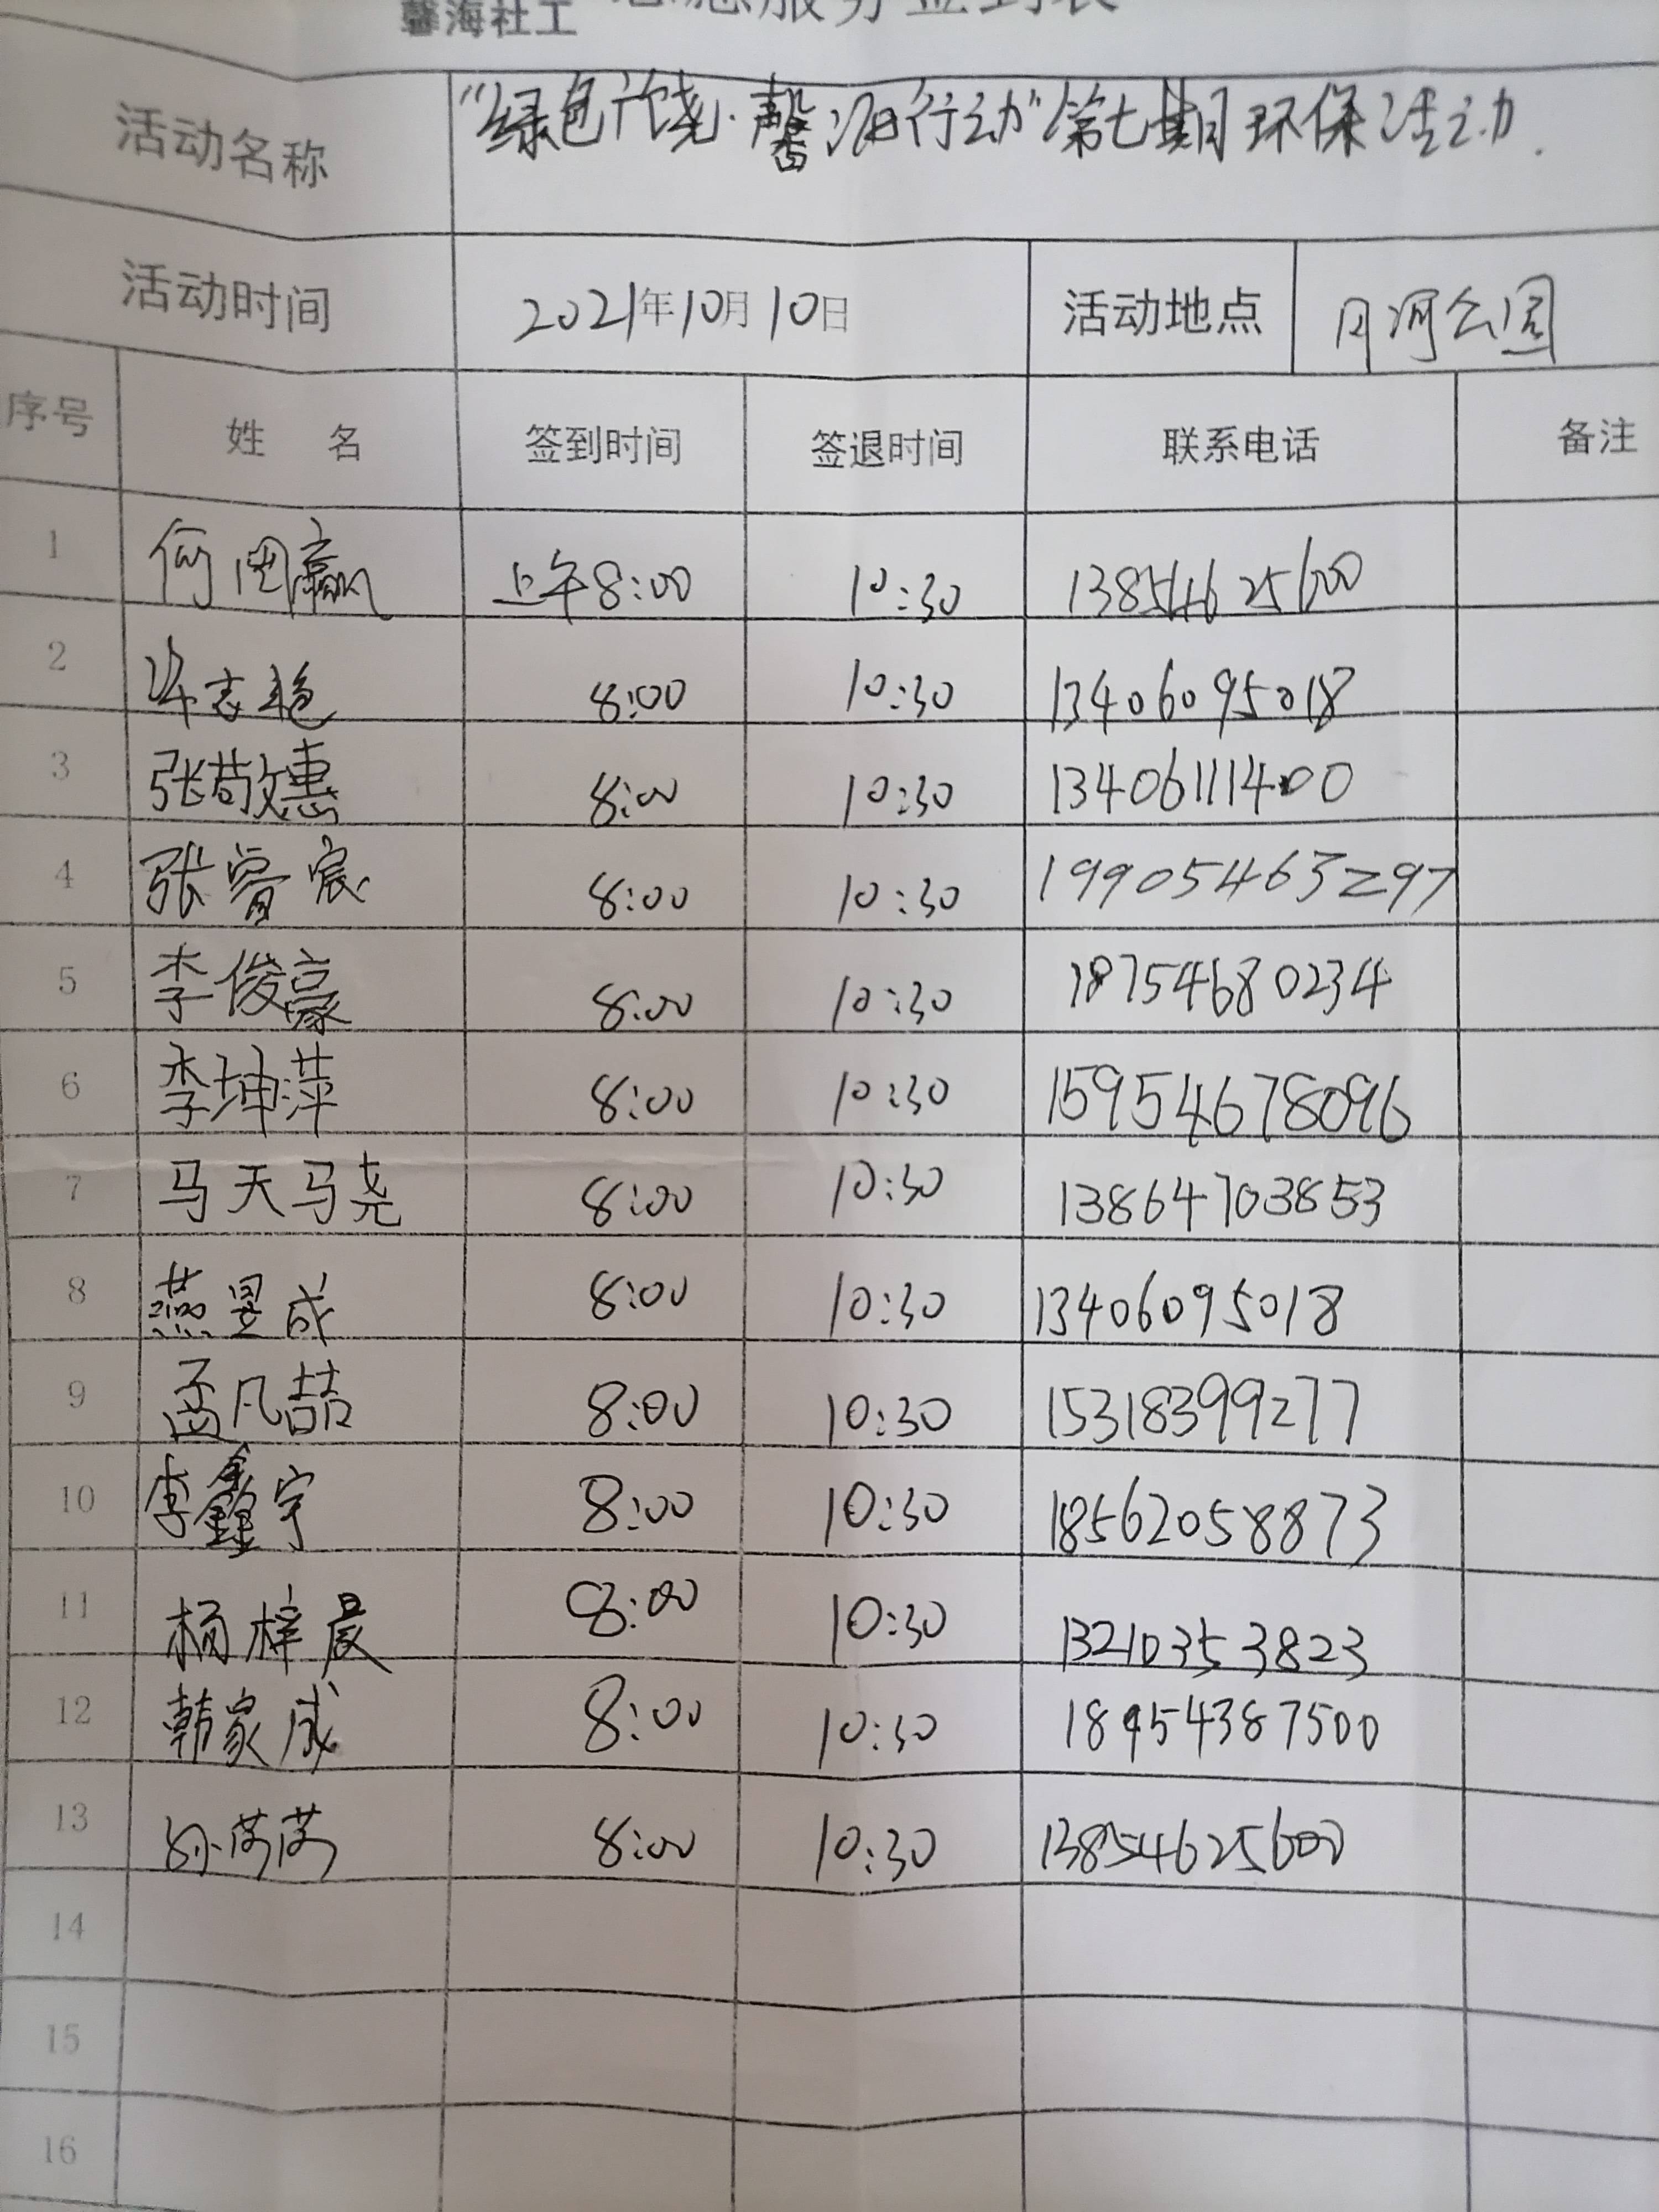 馨海社工 志愿服务签到表
活动名称 "绿色广饶·馨海行动"第七期环保活动.
活动时间 2021年10月10日 活动地点 月河公园
序号 姓 名 签到时间 签退时间 联系电话 备注
1 何田赢 上午8:00 10:30 13854625600
2 志艳 8:00 10:30 13406095018
3 张敬惠 8:00 10:30 13406111400
4 张睿宸 8:00 10:30 19905463297
5 李俊豪 8:00 10:30 18754680234
6 李坤萍 8:00 10:30 15954678096
7 马天骁 8:00 10:30 13864703853
8 燕昱成 8:00 10:30 13406095018
9 孟凡喆 8:00 10:30 15318399277
10 李鑫宇 8:00 10:30 18562058873
11 杨梓晨 8:00 10:30 13210353823
12 韩家成 8:00 10:30 18954387500
13 孙 8:00 10:30 13854625600
14
15
16